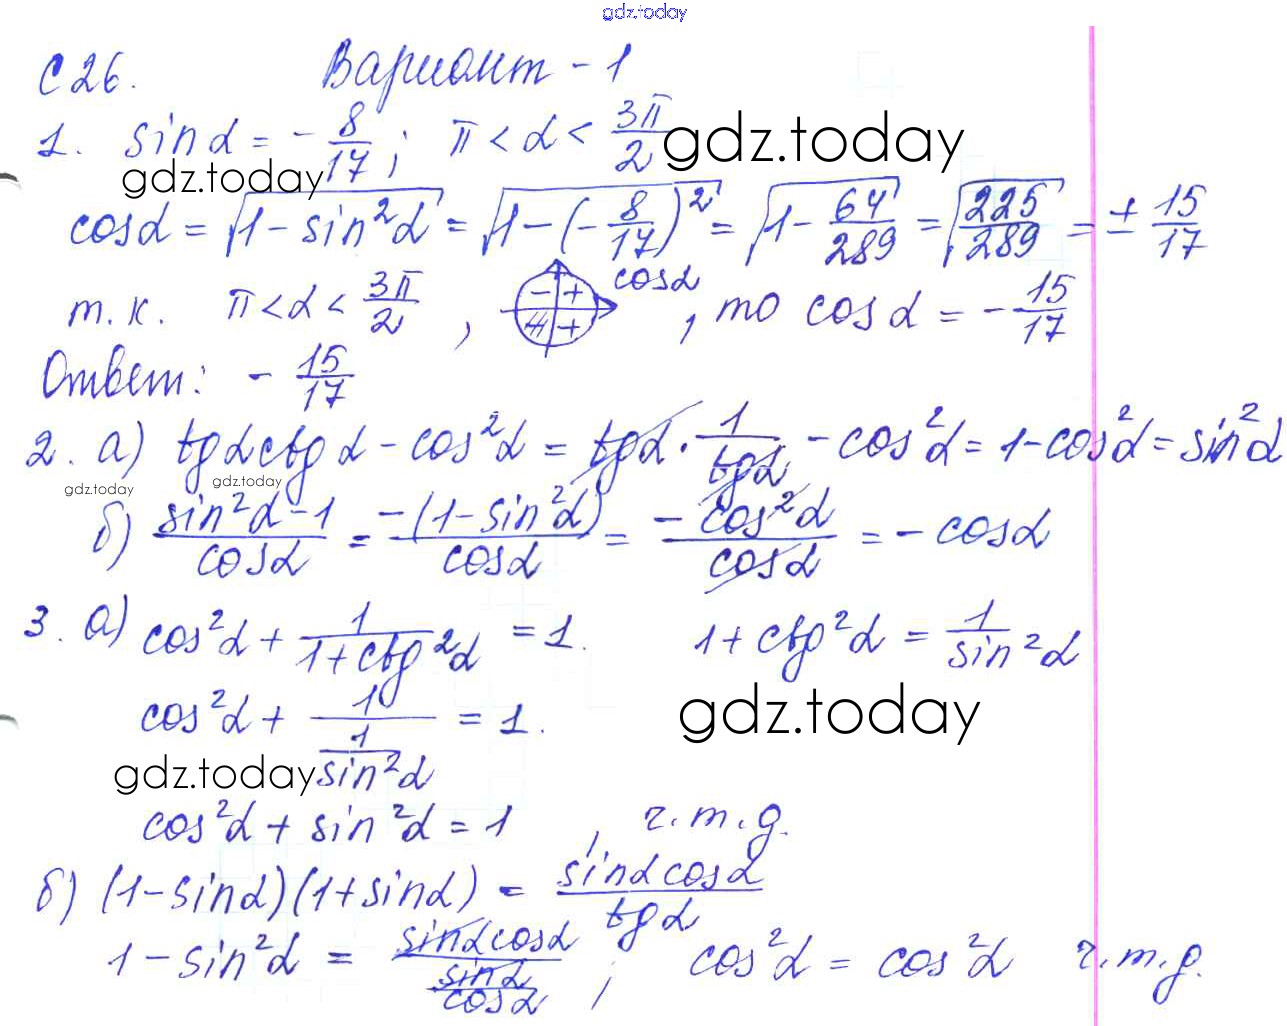 gdz.today
С 26. Вариант - 1
1. sin α = - 8/17 ; π < α < 3π/2 gdz.today
gdz.today
cos α = √(1 - sin²α) = √(1 - (-8/17)²) = √(1 - 64/289) = √(225/289) = ± 15/17
т. к. π < α < 3π/2 , - + + cos α , то cos α = - 15/17
Ответ: - 15/17
2. а) tg α ctg α - cos²α = tg α · 1/tg α - cos²α = 1 - cos²α = sin²α
gdz.today gdz.today
б) (sin²α - 1)/cos α = -(1 - sin²α)/cos α = - cos²α/cos α = - cos α
3. а) cos²α + 1/(1 + ctg²α) = 1. 1 + ctg²α = 1/sin²α
cos²α + 1/(1/sin²α) = 1. gdz.today
gdz.today
cos²α + sin²α = 1 , ч.т.д.
б) (1 - sin α)(1 + sin α) = sin α cos α/tg α
1 - sin²α = sin α cos α/(sin α/cos α) ; cos²α = cos²α ч.т.д.